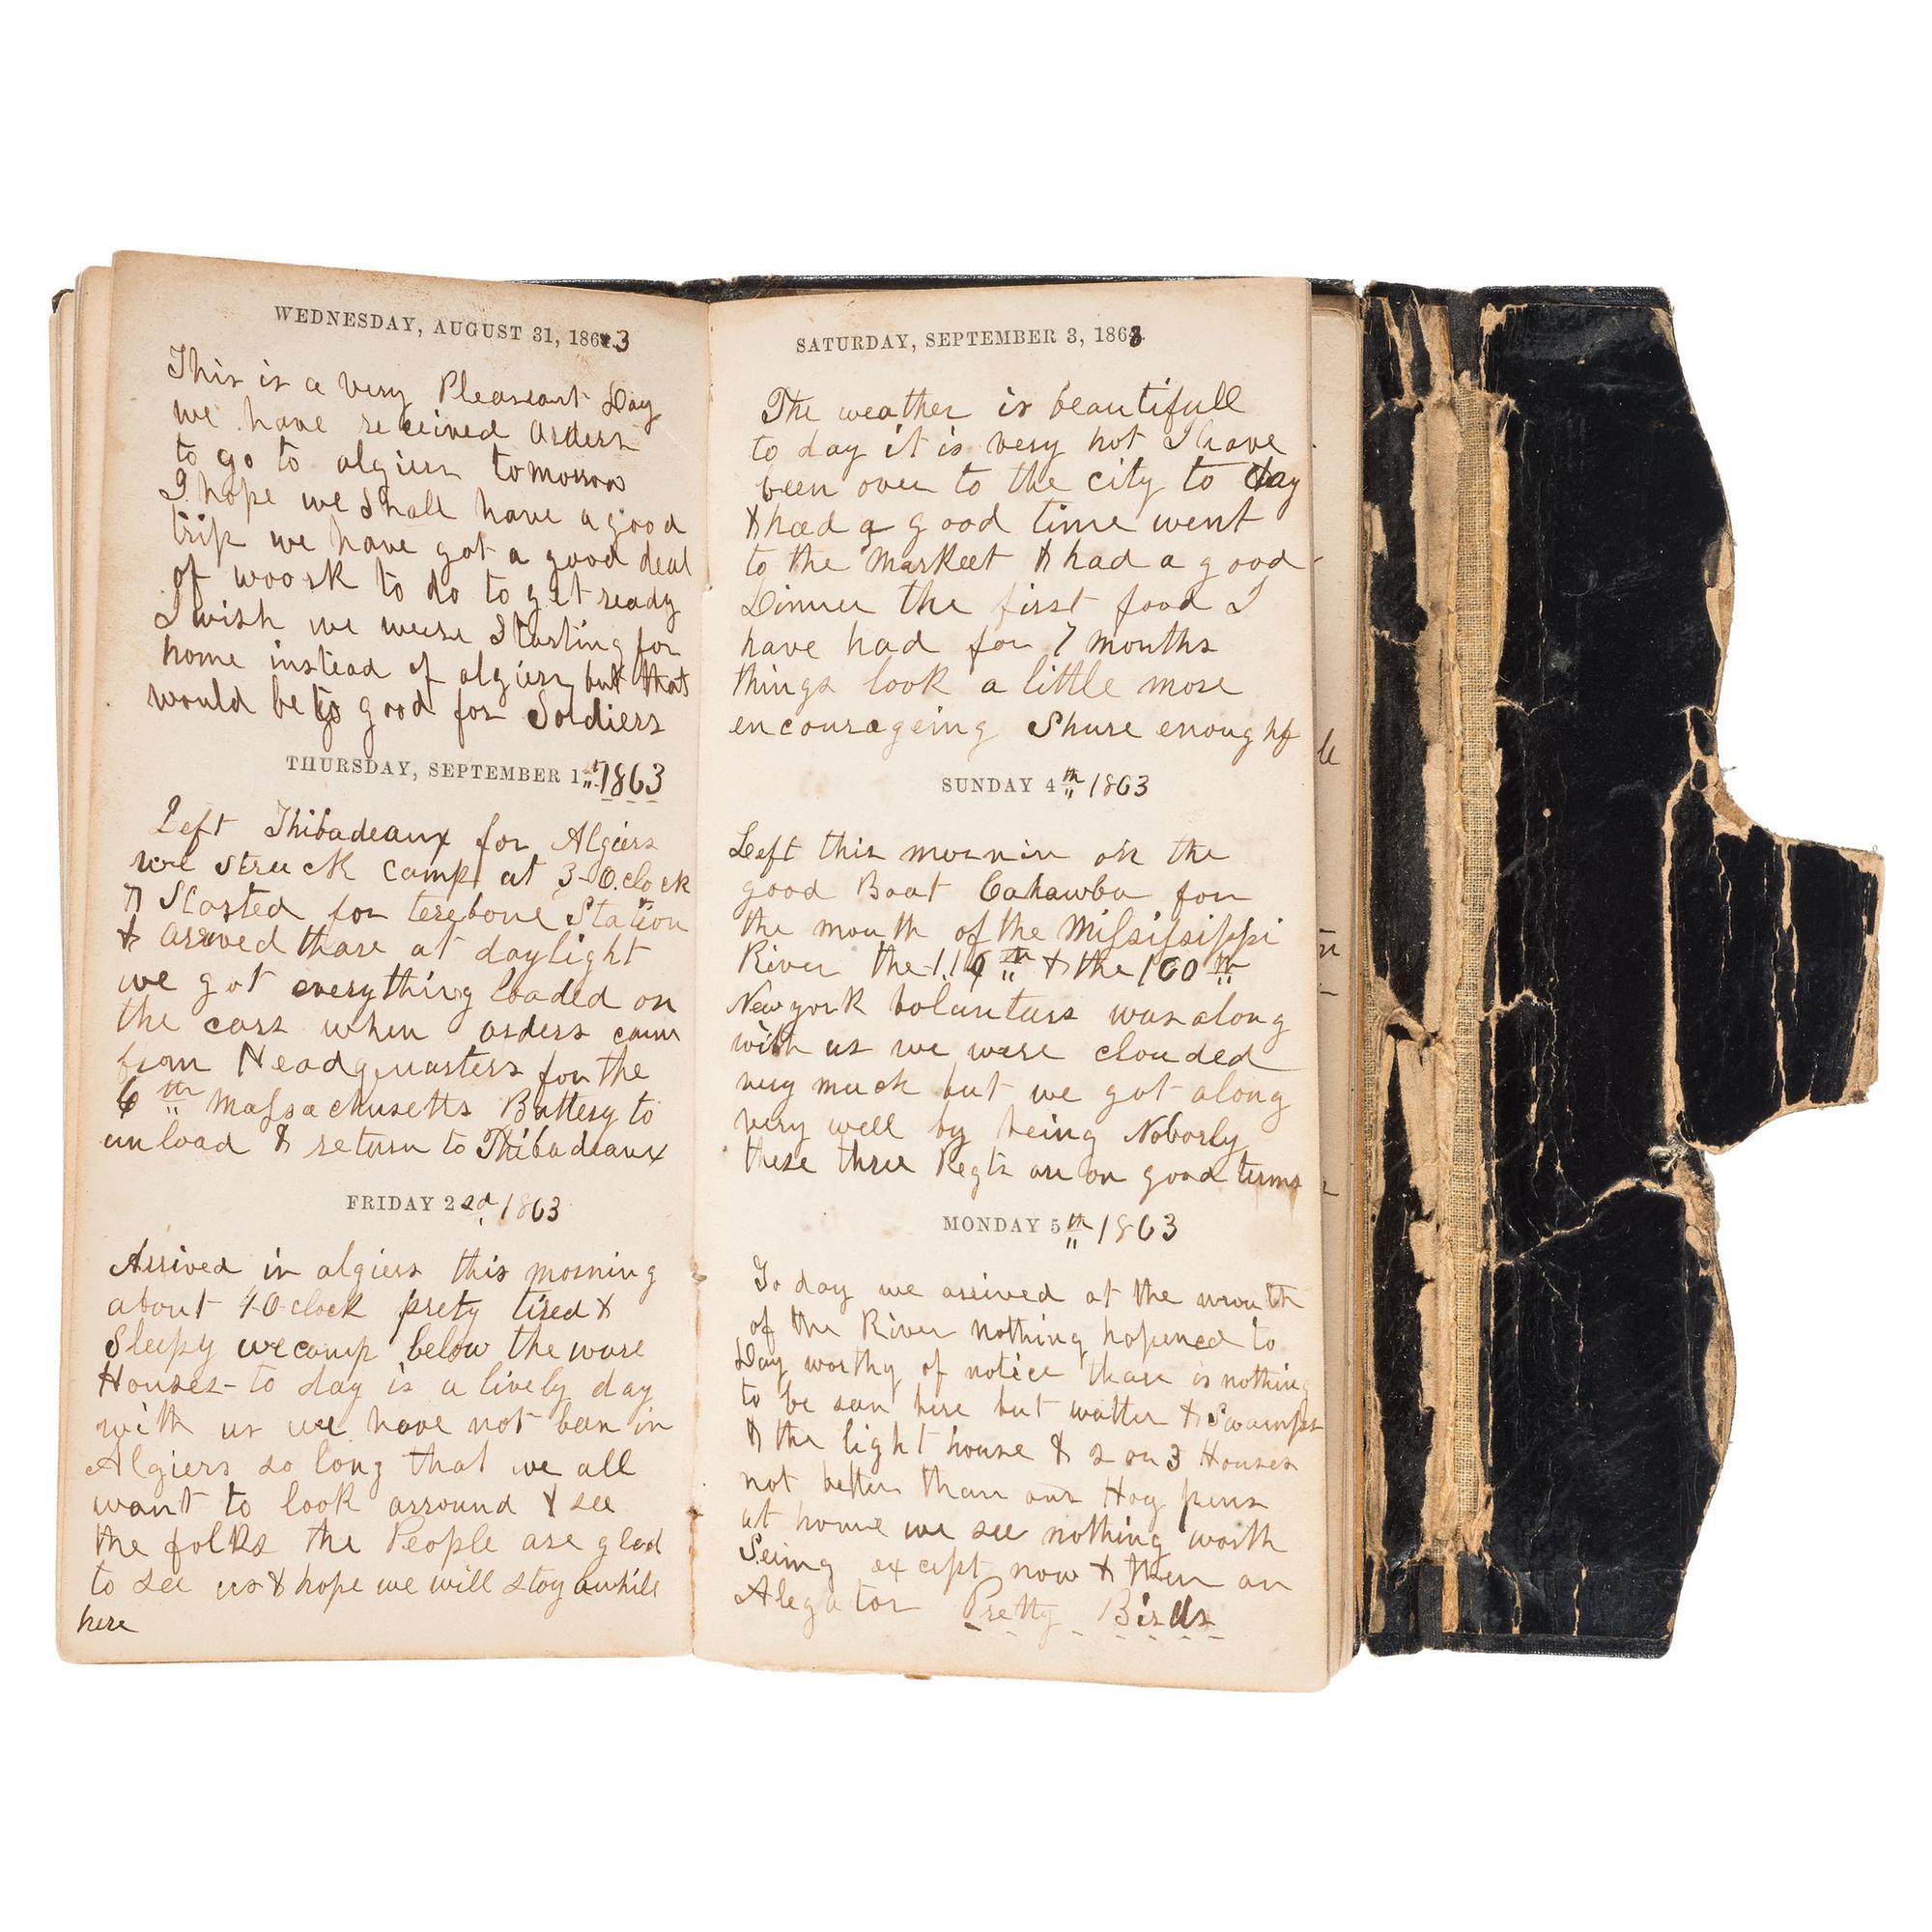 WEDNESDAY, AUGUST 31, 1863
This is a very Pleasant Day
we have received orders
to go to algiers tomorrow
I hope we Shall have a good
trip we have got a good deal
of woork to do to get ready
I wish we weere Starting for
home instead of algiers but that
would be to good for Soldiers
THURSDAY, SEPTEMBER 1st 1863
Left Thibadeaux for Algiers
we struck camp at 3-O.clock
& Started for terebone Station
& arived thare at daylight
we got everything loaded on
the cars when orders came
from Headquarters for the
6th Massachusetts Battery to
unload & return to Thibadeaux
FRIDAY 2nd 1863
Arrived in algiers this morning
about 4-O-clock prety tired &
Sleepy we camp below the ware
Houses- to day is a lively day
with us we have not ben in
Algiers so long that we all
want to look arround & see
the folks the People are glad
to see us & hope we will stay awhile
here
SATURDAY, SEPTEMBER 3, 1863
The weather is beautifull
to day it is very hot I have
been over to the city to day
& had a good time went
to the Markeet & had a good
Dinner the first food I
have had for 7 months
things look a little more
encourageing Shure enough
SUNDAY 4th 1863
Left this mornin on the
good Boat Cahawba for
the mouth of the Mississippi
River the 116th & the 100th
New york volunteers was along
with us we were clouded
very much but we got along
very well by being Noborly
these three Regts are on good terms
MONDAY 5th 1863
To day we arrived at the mouth
of the River nothing hopened to
Day worthy of notice thare is nothing
to be sean here but watter & Swamps
& the light house & 2 or 3 Houses
not better than our Hog pens
at home we see nothing worth
Seing except now & then an
Alegator Pretty Birds